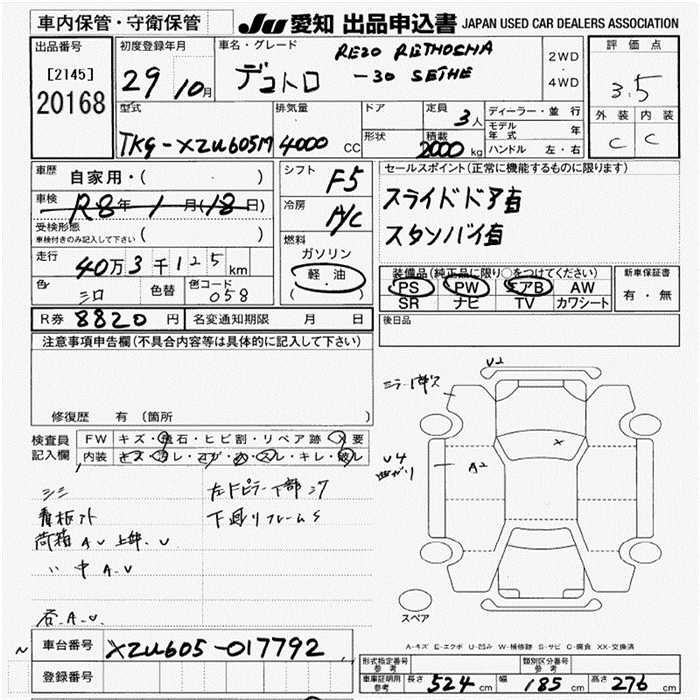 車内保管・守衛保管
JU 愛知 出品申込書 JAPAN USED CAR DEALERS ASSOCIATION
出品番号
[2145]
20168
初度登録年月
29 10月
車名・グレード
デュトロ
2WD
・
4WD
評価点
3.5
外装 内装
C C
型式
TKG-XZU605M
排気量
4000 CC
ドア
形状
定員
3人
積載
2000 kg
ディーラー・並行
モデル年式 年
ハンドル 左・右
車歴
自家用・( )
車検
R8年 1月(18日)
受検形態
車検付きのみ記入して下さい ( )
走行
40万3千125km
色
シロ
色替
色コード
058
シフト
F5
冷房
A/C
燃料
ガソリン
軽・油
( )
セールスポイント(正常に機能するものに限ります)
スライドドア有
スタンバイ有
装備品(純正品に限り○をつけてください)
PS PW エアB AW
SR ナビ TV カワシート
新車保証書
有・無
R券 8820円
名変通知期限 月 日
後日品
注意事項申告欄(不具合内容等は具体的に記入して下さい)
修復歴 有 (箇所 )
検査員
記入欄
FW キズ・飛石・ヒビ割・リペア跡・X要
内装 キズ・汚レ・コゲ・穴・スレ・キレ・破レ
シミ
看板ナオ
荷箱 A.U 上部.U
〃 中 A.U
各.A.U.
左ドピラー下部コワ
下廻りフレームS
U2
ミラーキズ
U4
曲がり
A2
X
スペア
A-キズ E-エクボ U-凹み W-補修跡 S-サビ C-腐食 XX-交換済
車台番号 XZU605-017792
登録番号
形式指定番号
参考
類別区分番号
参考
車庫証明用
参考
長さ 524 cm
幅 185 cm
高さ 276 cm